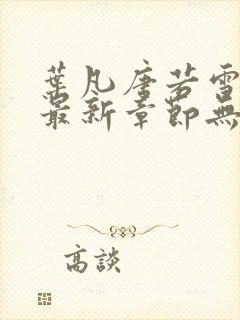 葉凡唐若雪
最新章節無
高談